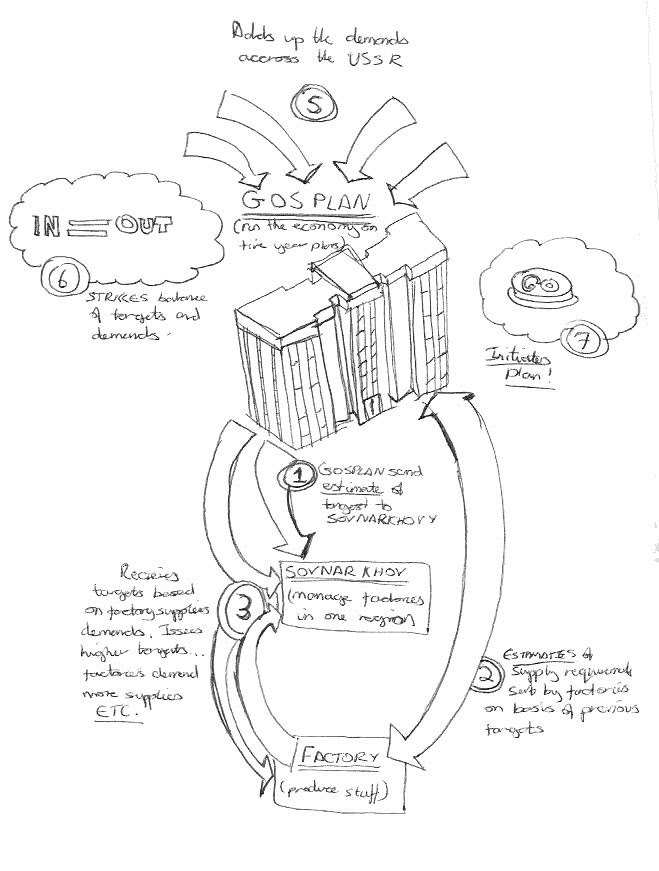 Adds up the demands
accross the USSR
5
GOSPLAN
(run the economy on
five year plans)
IN = OUT
6
STRIKES balance
of targets and
demands.
GO
7
Initiates
plan!
1
GOSPLAN send
estimate of
target to
SOVNARKHOVY
SOVNARKHOV
(manage factories
in one region)
3
Receives
targets based
on factory supplies
demands. Issues
higher targets...
factories demand
more supplies
ETC.
2
ESTIMATES of
supply requirements
sent by factories
on basis of previous
targets
FACTORY
(produce stuff)